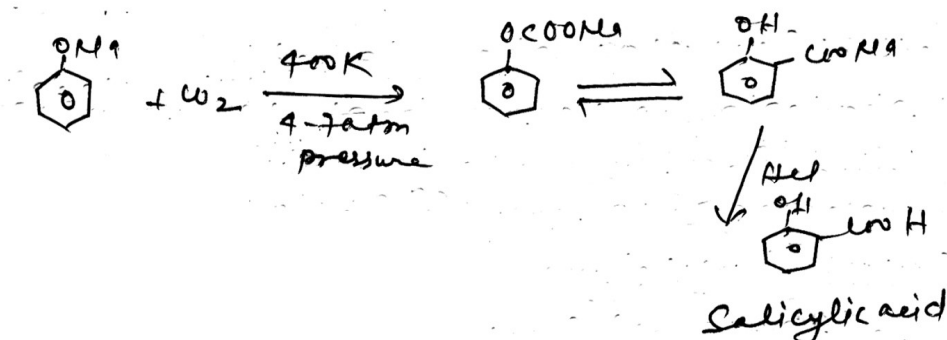 ONa
+ CO2
400K
4-7 atm
pressure
OCOONa
OH
COONa
HCl
OH
COOH
Salicylic acid